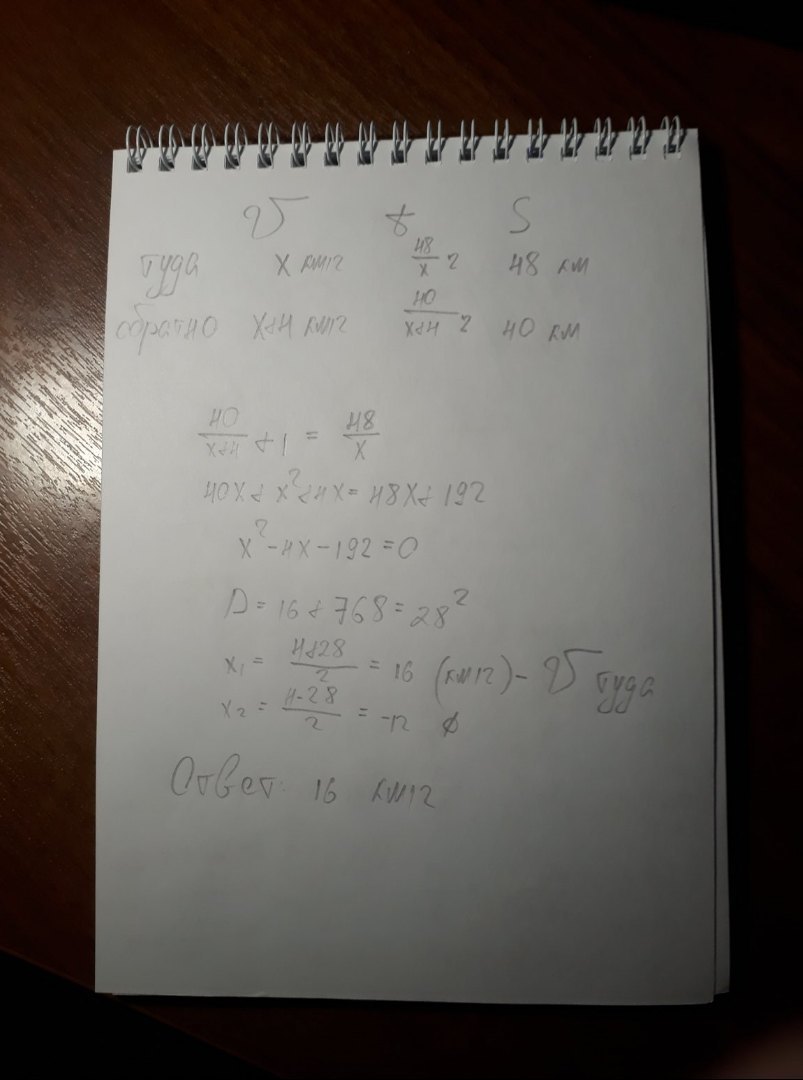 V t S
туда x км/г 48/x г 48 км
обратно x+4 км/г 40/x+4 г 40 км
40/x+4 + 1 = 48/x
40x + x² + 4x = 48x + 192
x² - 4x - 192 = 0
D = 16 + 768 = 28²
x₁ = 4+28/2 = 16 (км/г) - V туда
x₂ = 4-28/2 = -12 ∅
Ответ: 16 км/г